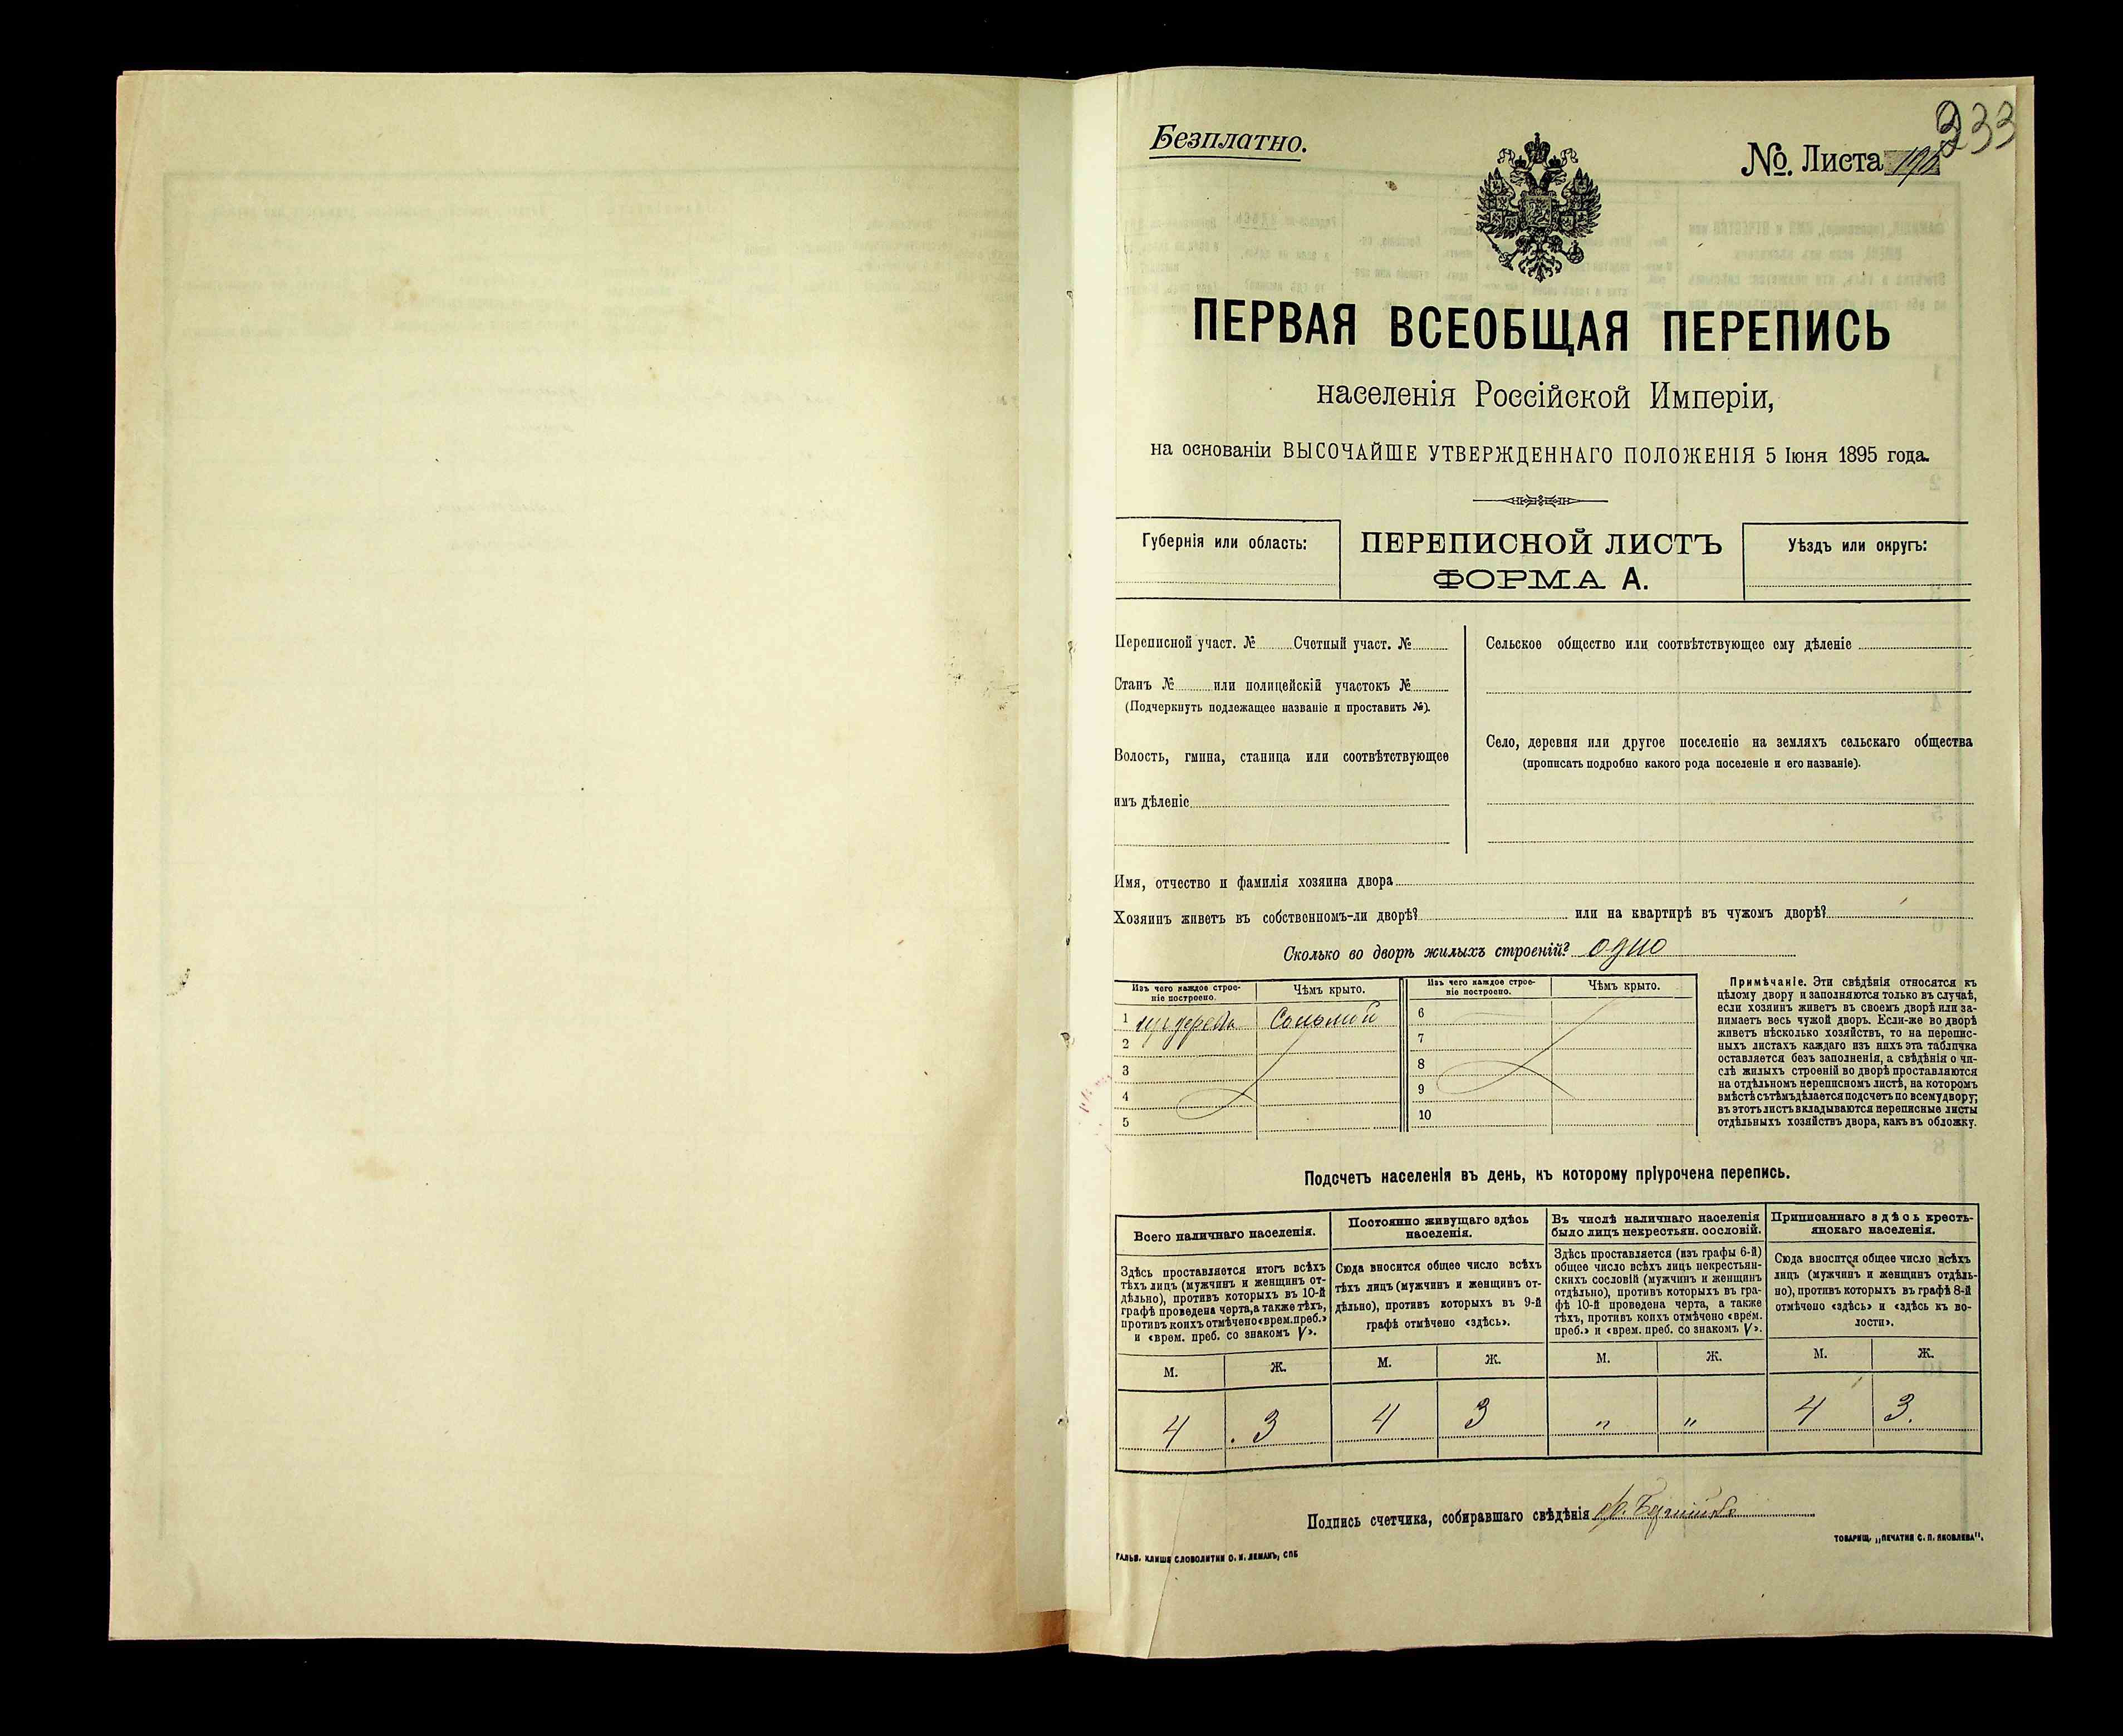 233
Безплатно.
№. Листа
ПЕРВАЯ ВСЕОБЩАЯ ПЕРЕПИСЬ
населенія Россійской Имперіи,
на основаніи ВЫСОЧАЙШЕ УТВЕРЖДЕННАГО ПОЛОЖЕНІЯ 5 Іюня 1895 года.
Губернія или область:
ПЕРЕПИСНОЙ ЛИСТЪ
ФОРМА А.
Уѣздъ или округъ:
Переписной участ. № Счетный участ. №
Станъ № или полицейскій участокъ №
(Подчеркнуть подлежащее названіе и проставить №).
Волость, гмина, станица или соотвѣтствующее
имъ дѣленіе
Сельское общество или соотвѣтствующее ему дѣленіе
Село, деревня или другое поселеніе на земляхъ сельскаго общества
(прописать подробно какого рода поселеніе и его названіе).
Имя, отчество и фамилія хозяина двора
Хозяинъ живетъ въ собственномъ-ли дворѣ? или на квартирѣ въ чужомъ дворѣ?
Сколько во дворѣ жилыхъ строеній? одно
Изъ чего каждое строе-
ніе построено.
Чѣмъ крыто.
1 изъ дерева Соломой
2
3
4
5
Изъ чего каждое строе-
ніе построено.
Чѣмъ крыто.
6
7
8
9
10
Примѣчаніе. Эти свѣдѣнія относятся къ
цѣлому двору и заполняются только въ случаѣ,
если хозяинъ живетъ въ своемъ дворѣ или за-
нимаетъ весь чужой дворъ. Если-же во дворѣ
живетъ нѣсколько хозяйствъ, то на перепис-
ныхъ листахъ каждаго изъ нихъ эта табличка
оставляется безъ заполненія, а свѣдѣнія о чи-
слѣ жилыхъ строеній во дворѣ проставляются
на отдѣльномъ переписномъ листѣ, на которомъ
вмѣстѣ съ тѣмъ дѣлается подсчетъ по всему двору;
въ этотъ листъ вкладываются переписные листы
отдѣльныхъ хозяйствъ двора, какъ въ обложку.
Подсчетъ населенія въ день, къ которому пріурочена перепись.
Всего наличнаго населенія.
Здѣсь проставляется итогъ всѣхъ
тѣхъ лицъ (мужчинъ и женщинъ от-
дѣльно), противъ которыхъ въ 10-й
графѣ проведена черта, а также тѣхъ,
противъ коихъ отмѣчено «врем. преб.»
и «врем. преб. со знакомъ V».
Постоянно живущаго здѣсь
населенія.
Сюда вносится общее число всѣхъ
тѣхъ лицъ (мужчинъ и женщинъ от-
дѣльно), противъ которыхъ въ 9-й
графѣ отмѣчено «здѣсь».
Въ числѣ наличнаго населенія
было лицъ некрестьян. сословій.
Здѣсь проставляется (изъ графы 6-й)
общее число всѣхъ лицъ некрестьян-
скихъ сословій (мужчинъ и женщинъ
отдѣльно), противъ которыхъ въ гра-
фѣ 10-й проведена черта, а также
тѣхъ, противъ коихъ отмѣчено «врем.
преб.» и «врем. преб. со знакомъ V».
Приписаннаго здѣсь кресть-
янскаго населенія.
Сюда вносится общее число всѣхъ
лицъ (мужчинъ и женщинъ отдѣль-
но), противъ которыхъ въ графѣ 8-й
отмѣчено «здѣсь» и «здѣсь къ во-
лости».
М. Ж. М. Ж. М. Ж. М. Ж.
4 3 4 3 " " 4 3.
Подпись счетчика, собиравшаго свѣдѣнія
ГАЛЬВ. КЛИШЕ СЛОВОЛИТНИ О. И. ЛЕМАНЪ, СПБ
ТОВАРИЩ. „ПЕЧАТНЯ С. П. ЯКОВЛЕВА".